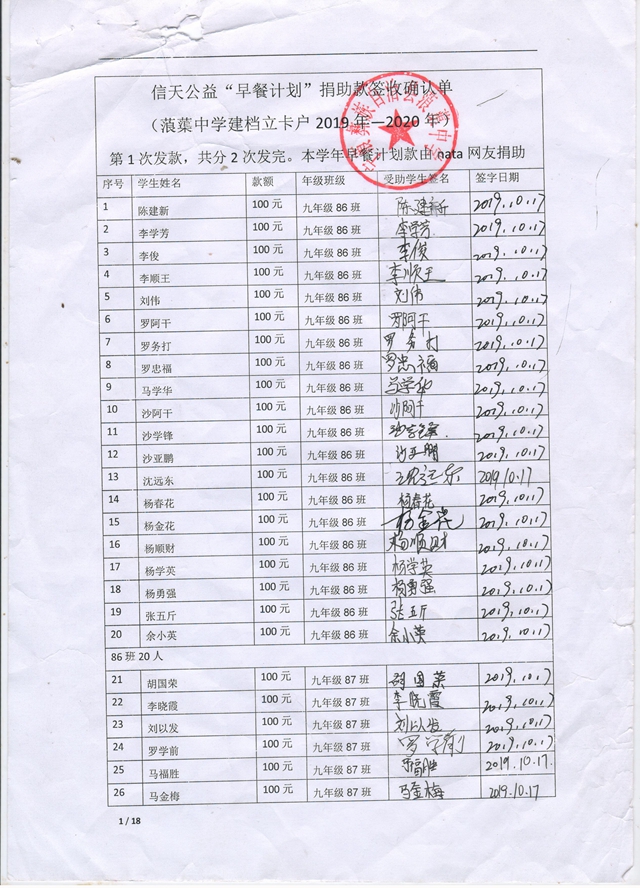 信天公益“早餐计划”捐助款签收确认单
（蒗蕖中学建档立卡户 2019 年—2020 年）
第 1 次发款，共分 2 次发完。本学年早餐计划款由 nata 网友捐助
序号 学生姓名 款额 年级班级 受助学生签名 签字日期
1 陈建新 100 元 九年级 86 班 陈建新 2019.10.17
2 李学芳 100 元 九年级 86 班 李学芳 2019.10.17
3 李俊 100 元 九年级 86 班 李俊 2019.10.17
4 李顺王 100 元 九年级 86 班 李顺王 2019.10.17
5 刘伟 100 元 九年级 86 班 刘伟 2019.10.17
6 罗阿干 100 元 九年级 86 班 罗阿干 2019.10.17
7 罗务打 100 元 九年级 86 班 罗务打 2019.10.17
8 罗忠福 100 元 九年级 86 班 罗忠福 2019.10.17
9 马学华 100 元 九年级 86 班 马学华 2019.10.17
10 沙阿干 100 元 九年级 86 班 沙阿干 2019.10.17
11 沙学锋 100 元 九年级 86 班 沙学锋 2019.10.17
12 沙亚鹏 100 元 九年级 86 班 沙亚鹏 2019.10.17
13 沈远东 100 元 九年级 86 班 沈远东 2019.10.17
14 杨春花 100 元 九年级 86 班 杨春花 2019.10.17
15 杨金花 100 元 九年级 86 班 杨金花 2019.10.17
16 杨顺财 100 元 九年级 86 班 杨顺财 2019.10.17
17 杨学英 100 元 九年级 86 班 杨学英 2019.10.17
18 杨勇强 100 元 九年级 86 班 杨勇强 2019.10.17
19 张五斤 100 元 九年级 86 班 张五斤 2019.10.17
20 余小英 100 元 九年级 86 班 余小英 2019.10.17
86 班 20 人
21 胡国荣 100 元 九年级 87 班 胡国荣 2019.10.17
22 李晓霞 100 元 九年级 87 班 李晓霞 2019.10.17
23 刘以发 100 元 九年级 87 班 刘以发 2019.10.17
24 罗学前 100 元 九年级 87 班 罗学前 2019.10.17
25 马福胜 100 元 九年级 87 班 马福胜 2019.10.17.
26 马金梅 100 元 九年级 87 班 马金梅 2019.10.17
1 / 18